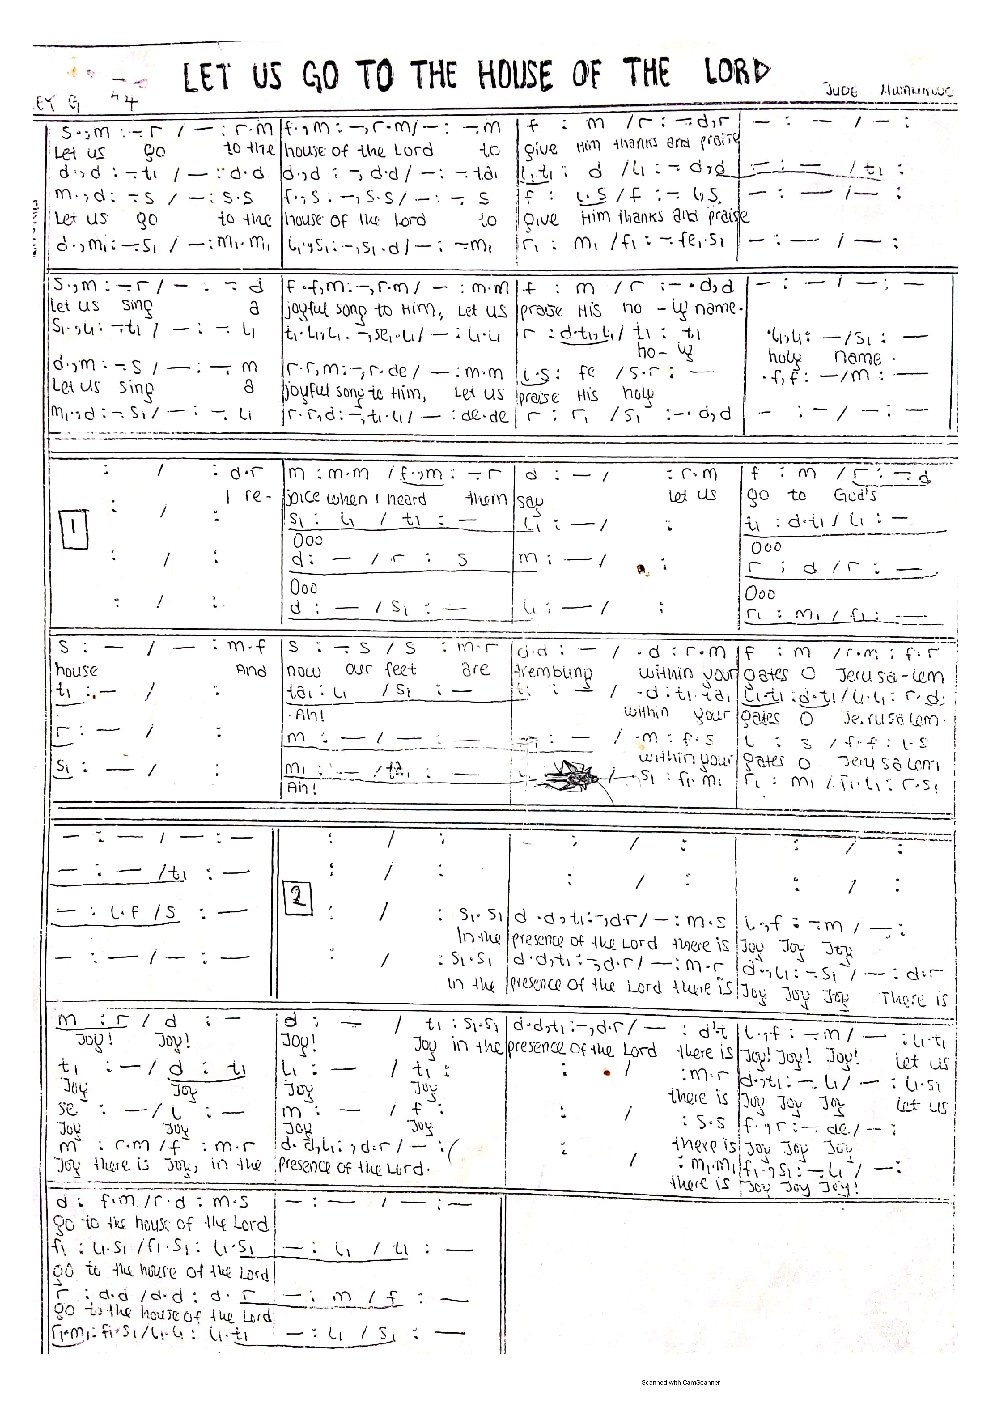 LET US GO TO THE HOUSE OF THE LORD
JUDE
s.,m :-.r / - : r.m f.,m :-,r.m/- : -.m f : m / r :-.d,r - : - / - :
Let us go to the house of the Lord to give Him thanks and praise
d.,d :-.t₁ / - : d.d d.,d :-,d.d/- : -.ta₁ l₁.t₁ : d / l₁ :-.d,d - : - / t₁ :
m.,d :-.s / - : s.s f.,s :-,s.s/- : -.s f : l.s / f :-.l,s - : - / - :
Let us go to the house of the Lord to give Him thanks and praise
d.,m₁ :-.s₁ / - : m₁.m₁ l₁.,s₁ :-,s₁.d/- : -.m₁ r₁ : m₁ / f₁ :-.fe₁,s₁ - : - / - :
s.,m :-.r / - : -.d f.f,m :-,r.m/- : m.m f : m / r :-.d,d - : - / - :
Let us sing a joyful song to Him, Let us praise His ho - ly name.
s₁.,l₁ :-.t₁ / - : -.l₁ t₁.l₁,l₁.-,se₁.l₁/- : l₁.l₁ r : d.t₁,l₁/ t₁ : t₁ .l₁,l₁ : -/s₁ : -
ho-ly holy name.
d.,m :-.s / - : -.m r.r,m :-,r.de/- : m.m l.s : fe / s.r : - .f,f : -/m : -
Let us sing a joyful song to Him, Let us praise His holy
m₁.,d :-.s₁ / - : -.l₁ r.r,d :-,t₁.l₁/- : de.de r : r₁ / s₁ :-.d,d - : - / - :
: / : d.r m : m.m / f.,m : -.r d : - / : r.m f : m / r : -.d
I re- joice when I heard them say Let us go to God's
1
: / : s₁ : l₁ / t₁ : - l₁ : - / : t₁ : d.t₁/ l₁ : -
Ooo Ooo
: / : d : - / r : s m : - / : r : d / r : -
Ooo Ooo
: / : d : - / s₁ : - l₁ : - / : r₁ : m₁ / f₁ : -
s : - / - : m.f s : -.s / s : m.r d.d : - / .d : r.m f : m / r.m : f.r
house And now our feet are trembling within your gates O Jerusa-lem
t₁ : - / : ta₁ : l₁ / s₁ : - t₁ : - / .d : t₁.ta₁ l₁.t₁ : d.t₁/l₁.l₁ : r.d
Ah! within your gates O Jerusalem.
r : - / : m : - / - : - - : - / .m : f.s l : s / f.f : l.s
within your gates O Jerusalem
s₁ : - / : m₁ : - / ta₁ : - s₁ : f₁.m₁ r₁ : m₁ / f₁.l₁ : r.s₁
Ah!
- : - / - : - : / : : / : : / :
- : - / t₁ : - : / : : / : : / :
2
- : l.f / s : - : / : s₁.s₁ d.d,t₁ :-,d.r/- : m.s l.,f : -.m / - :
In the presence of the Lord there is Joy Joy Joy
- : - / - : - : / : s₁.s₁ d.d,t₁ :-,d.r/- : m.r d.,l₁ : -.s₁ / - : d.r
in the presence of the Lord there is Joy Joy Joy There is
m : r / d : - d : - / t₁ : s₁.s₁ d.d,t₁ :-,d.r/- : d't l.,f : -.m / - : l₁.t₁
Joy! Joy! Joy! Joy in the presence of the Lord there is Joy! Joy! Joy! Let us
t₁ : - / d : t₁ l₁ : - / t₁ : : / : m.r d.,t₁ : -.l₁ / - : l₁.s₁
Joy Joy Joy Joy there is Joy Joy Joy Let us
se : - / l : - m : - / f : : / : s.s f.,r : -.de/ - :
Joy Joy Joy Joy there is Joy Joy Joy
m : r.m / f : m.r d.d,l₁ :,d.r / - : : / : m₁.m₁ f₁.,s₁ : -.l₁ / - :
Joy there is Joy, in the presence of the Lord. there is Joy Joy Joy!
d : f.m / r.d : m.s - : - / - : -
go to the house of the Lord
f₁ : l₁.s₁ / f₁.s₁ : l₁.s₁ - : l₁ / t₁ : -
go to the house of the Lord
r : d.d / d.d : d.r - : m / f : -
go to the house of the Lord
r₁.m₁ : f₁.s₁/l₁.l₁ : l₁.t₁ - : l₁ / s₁ : -
Scanned with CamScanner